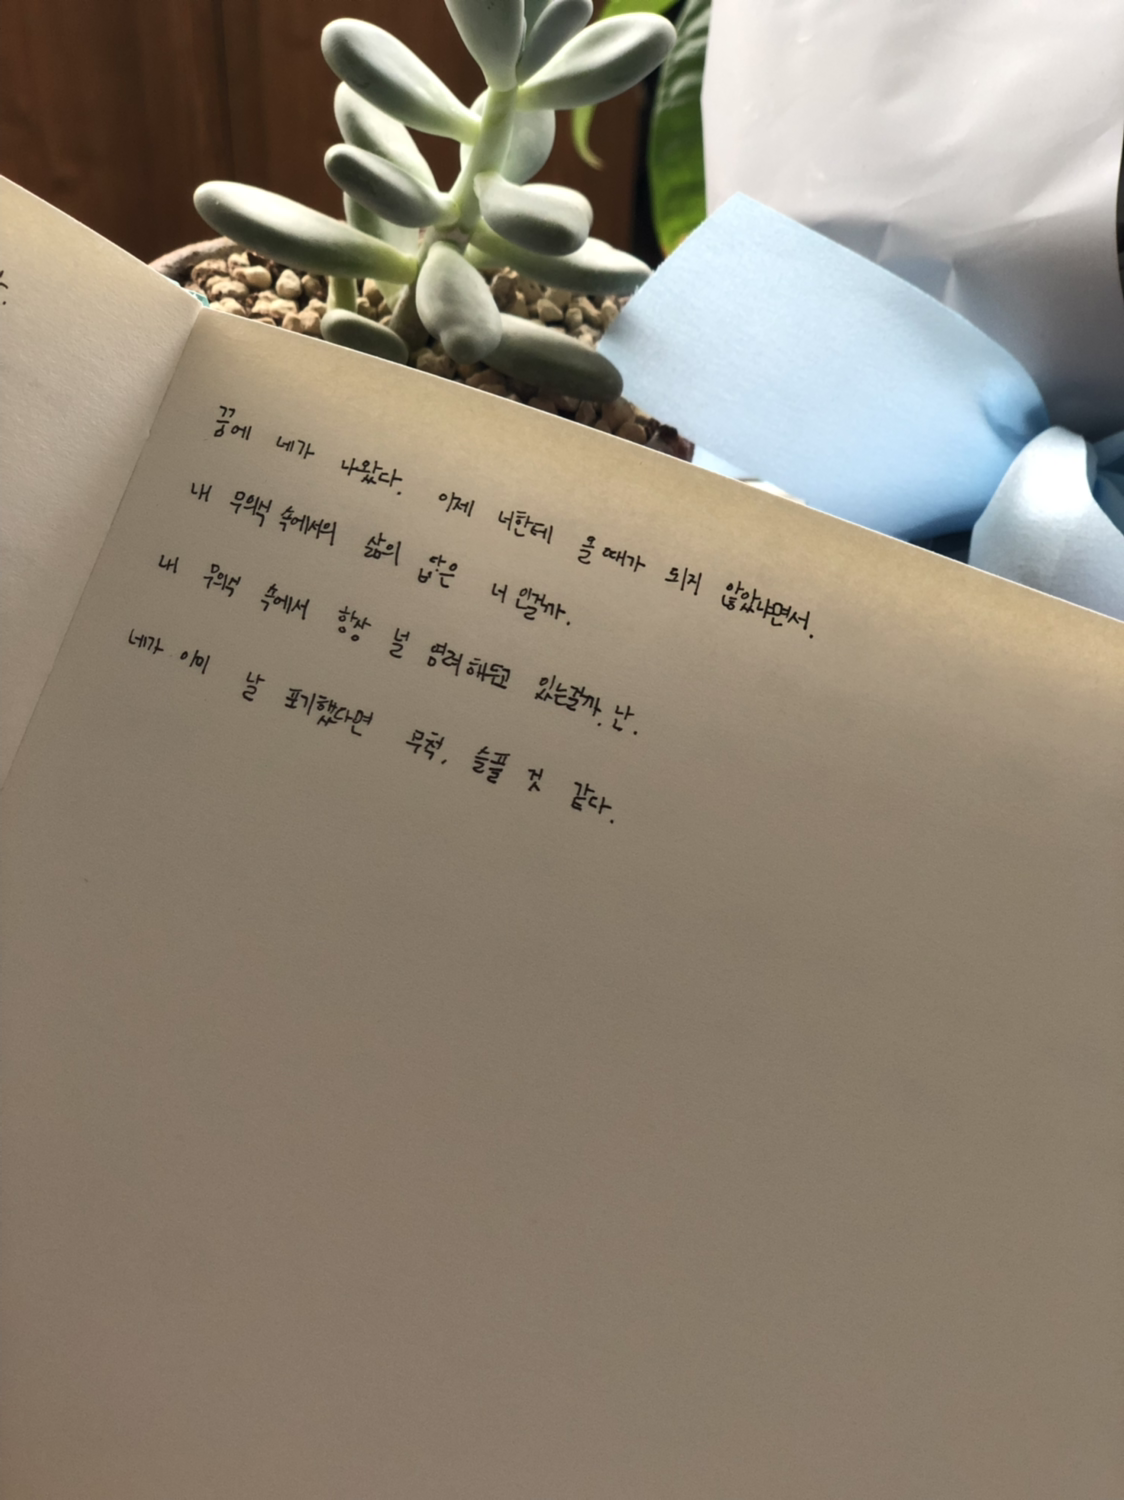 꿈에 네가 나왔다. 이제 너한테 올 때가 되지 않았냐면서.
내 무의식 속에서의 삶의 답은 너 인걸까.
내 무의식 속에서 항상 널 염려해두고 있는걸까. 난.
네가 이미 날 포기했다면 무척, 슬플 것 같다.